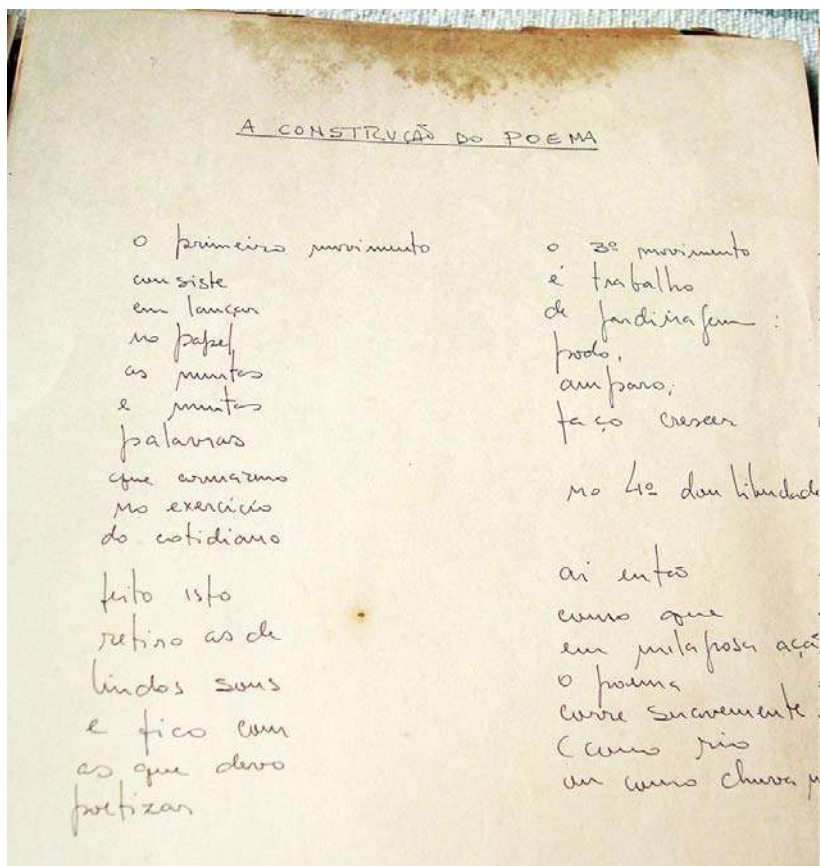 A CONSTRUÇÃO DO POEMA
o primeiro movimento
consiste
em lançar
no papel
as muitas
e muitas
palavras
que armazeno
no exercício
do cotidiano
feito isto
retiro as de
lindos sons
e fico com
as que devo
poetizar
o 3º movimento
é trabalho
de jardinagem:
podo,
amparo,
faço crescer
no 4º dou liberdade
aí então
como que
em milagrosa
o poema
corre suavemente
(como rio
ou como chuva